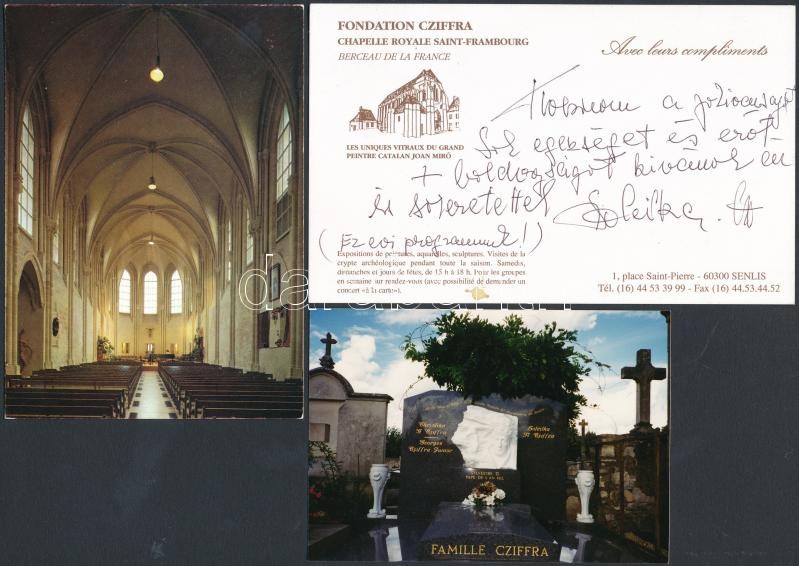 FONDATION CZIFFRA
CHAPELLE ROYALE SAINT-FRAMBOURG
BERCEAU DE LA FRANCE
Avec leurs compliments
LES UNIQUES VITRAUX DU GRAND
PEINTRE CATALAN JOAN MIRÓ
a jókívánságot
Sok egészséget és erőt
+ boldogságot kívánok én
is szeretettel Soleilka
(Ez évi programunk!)
Expositions de peintures, aquarelles, sculptures. Visites de la
crypte archéologique pendant toute la saison. Samedis,
dimanches et jours de fêtes, de 15 h à 18 h. Pour les groupes
en semaine sur rendez-vous (avec possibilité de demander un
concert «à la carte»).
1, place Saint-Pierre - 60300 SENLIS
Tél. (16) 44 53 39 99 - Fax (16) 44.53.44.52
Georges
Cziffra Junior
Soleilka
Cziffra
SYLVESTRE II
PAPE DE L'AN MIL
FAMILLE CZIFFRA